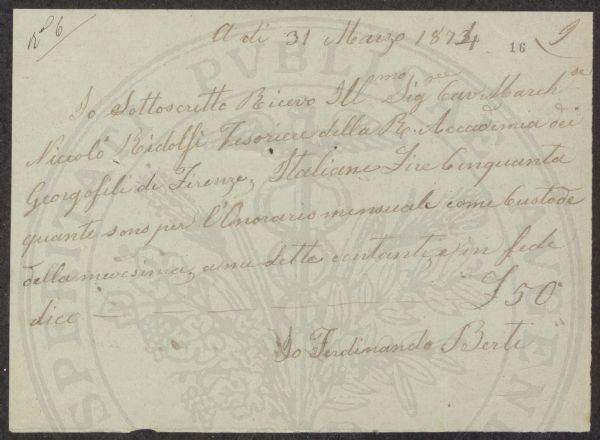 N° 6
A di 31 Marzo 1874 16 9
Io Sottoscritto Ricevo Ill^mo Sig^re Cav March^se
Niccolò Ridolfi Tesoriere della R. Accademia dei
Georgofili di Firenze, Italiane Lire Cinquanta
quante sono per l'Onorario mensuale come Custode
della medesima, a me dette contante, e in fede
dico — — — £ 50
Io Ferdinando Berti